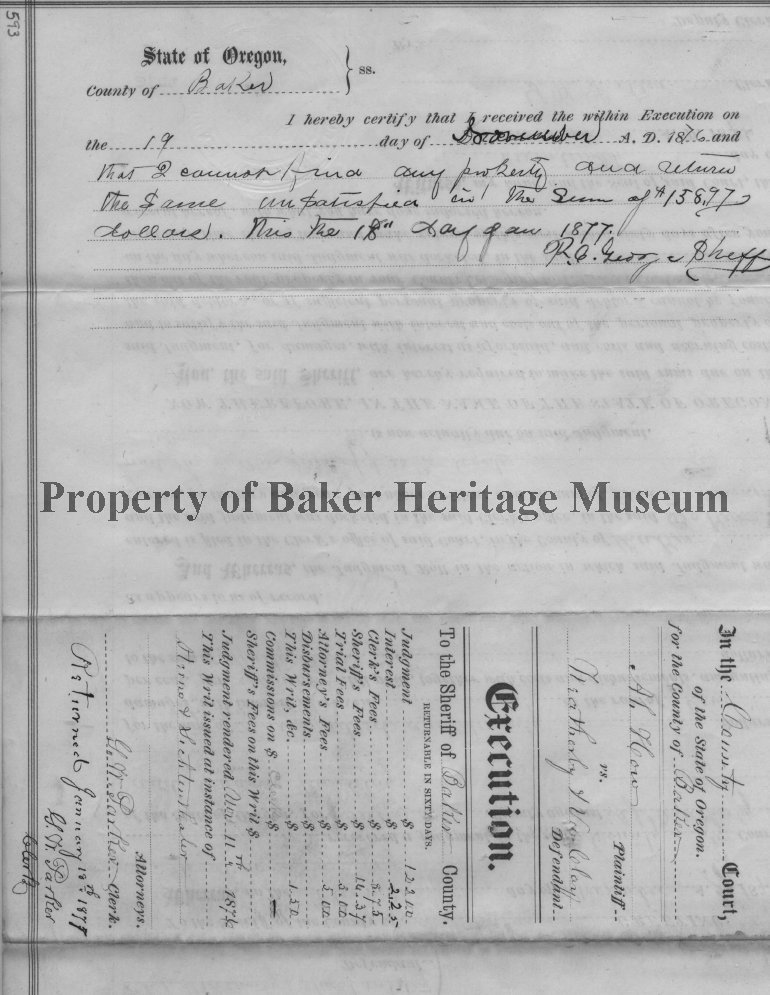 593
State of Oregon,
County of Baker } ss.
I hereby certify that I received the within Execution on
the 19 day of December A. D. 1876 and
that I cannot find any property and return
the same unsatisfied in the Sum of $158.97
dollars. this the 18" Day of Jan 1877.
R.C. George Sheff
Property of Baker Heritage Museum
In the County Court,
of the State of Oregon.
for the County of Baker
Ah How
Plaintiff
vs.
Weatherby &
Defendant
Execution.
To the Sheriff of Baker County.
RETURNABLE IN SIXTY DAYS.
Judgment $ 122.10
Interest $ 2.25
Clerk's Fees $ 8.75
Sheriff's Fees $ 14.37
Trial Fees $ 3.00
Attorney's Fees $ 5.00
Disbursements $
This Writ, &c. $ 1.50
Commissions on $ $
Sheriff's Fees on this Writ $
Judgment rendered Nov. 11th 1876
This Writ issued at instance of
Attorneys.
G. W. Parker Clerk.
Returned January 18th 1877
G W Parker
Clerk